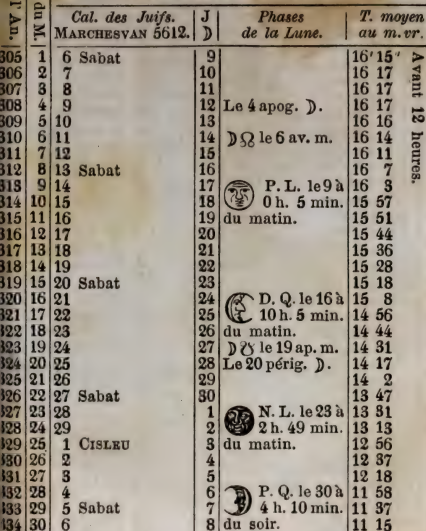 l'An. du M. Cal. des Juifs. MARCHESVAN 5612. J ☽ Phases de la Lune. T. moyen au m. vr.
305 1 6 Sabat 9 16' 15"
306 2 7 10 16 17
307 3 8 11 16 17
308 4 9 12 Le 4 apog. ☽. 16 17
309 5 10 13 16 16
310 6 11 14 ☽☊ le 6 av. m. 16 14
311 7 12 15 16 11
312 8 13 Sabat 16 16 7
313 9 14 17 P. L. le 9 à 16 3
314 10 15 18 0 h. 5 min. 15 57
315 11 16 19 du matin. 15 51
316 12 17 20 15 44
317 13 18 21 15 36
318 14 19 22 15 28
319 15 20 Sabat 23 15 18
320 16 21 24 D. Q. le 16 à 15 8
321 17 22 25 10 h. 5 min. 14 56
322 18 23 26 du matin. 14 44
323 19 24 27 ☽☋ le 19 ap. m. 14 31
324 20 25 28 Le 20 périg. ☽. 14 17
325 21 26 29 14 2
326 22 27 Sabat 30 13 47
327 23 28 1 N. L. le 23 à 13 31
328 24 29 2 2 h. 49 min. 13 13
329 25 1 CISLEU 3 du matin. 12 56
330 26 2 4 12 37
331 27 3 5 12 18
332 28 4 6 P. Q. le 30 à 11 58
333 29 5 Sabat 7 4 h. 10 min. 11 37
334 30 6 8 du soir. 11 15
Avant 12 heures.